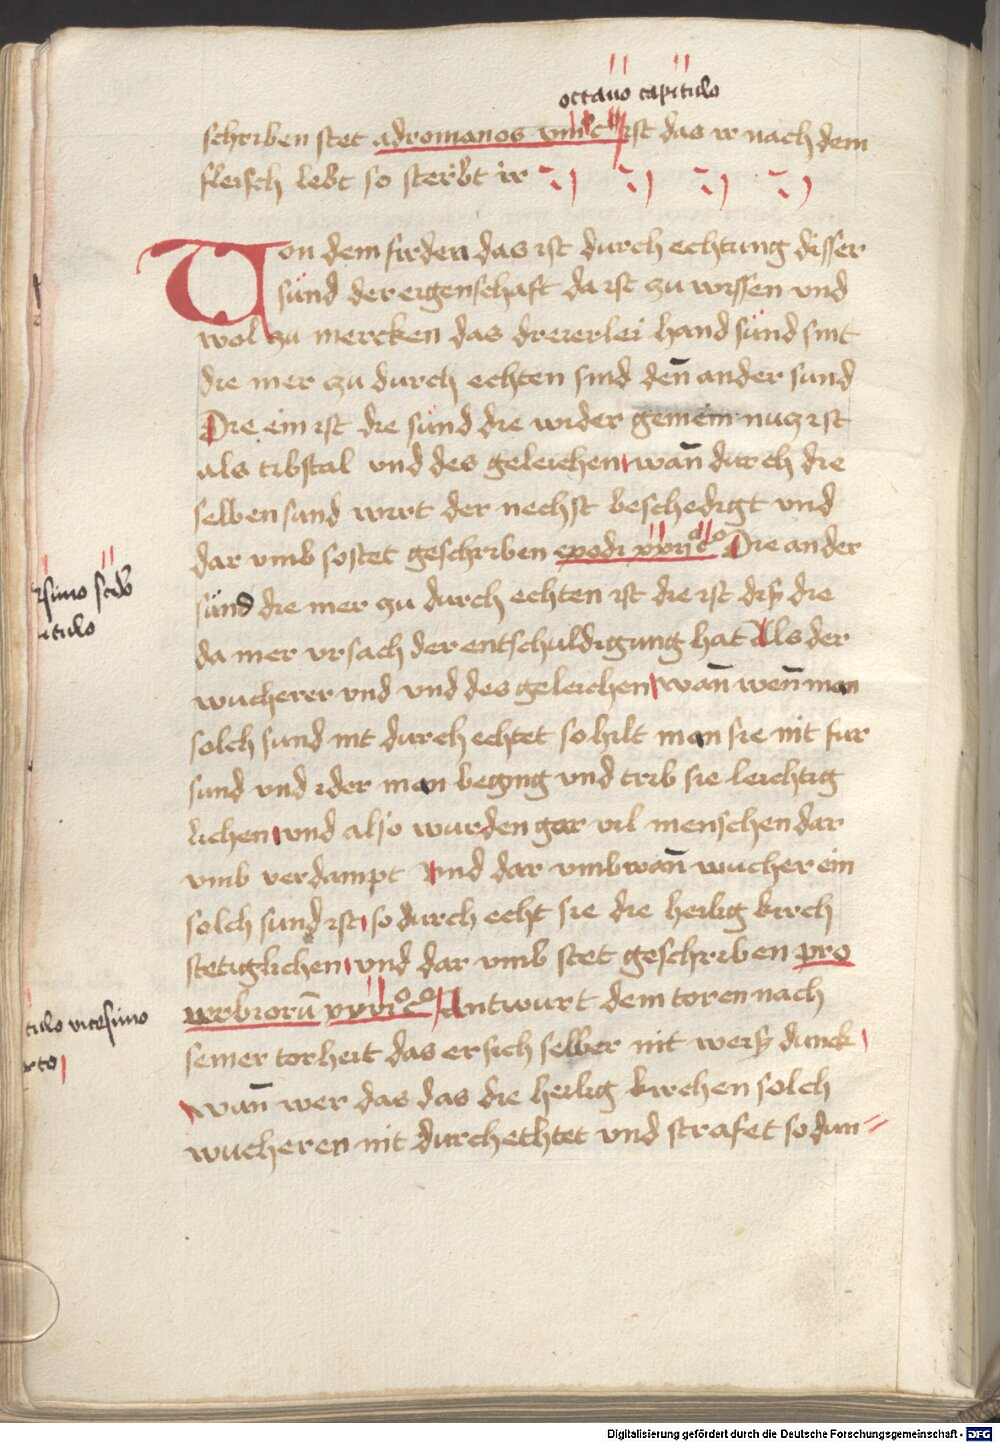 octauo capitulo
schriben stet adromanos viii c° ist das ir nach dem
fleisch lebt so sterbt ir
Von dem firden das ist durch echtung disser
sünd der eigenschaft da ist zu wissen vnd
wol zu mercken das dreierlei hand sünd sint
die mer zu durch echten sind den̄ ander sund
Die ein ist die sünd die wider gemein nucz ist
als tibstal vnd des geleichen wan̄ durch die
selben sund wirt der nechst beschedigt vnd
dar vmb sostet geschriben exodi xxii c° Die ander
sünd die mer zu durch echten ist die ist dıß die
da mer vrsach der entschuldigung hat Als der
wucherer vnd vnd des geleichen wan̄ wen̄ man
solch sund nit durch echtet so hilt man sie nit fur
sund vnd ider man beging vnd trib sie leichtig
lichen vnd also wurden gar vil menschen dar
vmb verdampt vnd dar vmb wan̄ wucher ein
solch sund ist so durch echt sie die heilig kirch
stetiglichen vnd dar vmb stet geschriben pro
verbiorū xxvi c° Antwurt dem toren nach
seiner torheit das er sich selber nit weiß dunck
wan̄ wer das das die heilig kirchen solch
wucheren nit durch echtet vnd strafet so dan
itulo
tulo vicesimo
rto
Digitalisierung gefördert durch die Deutsche Forschungsgemeinschaft - DFG